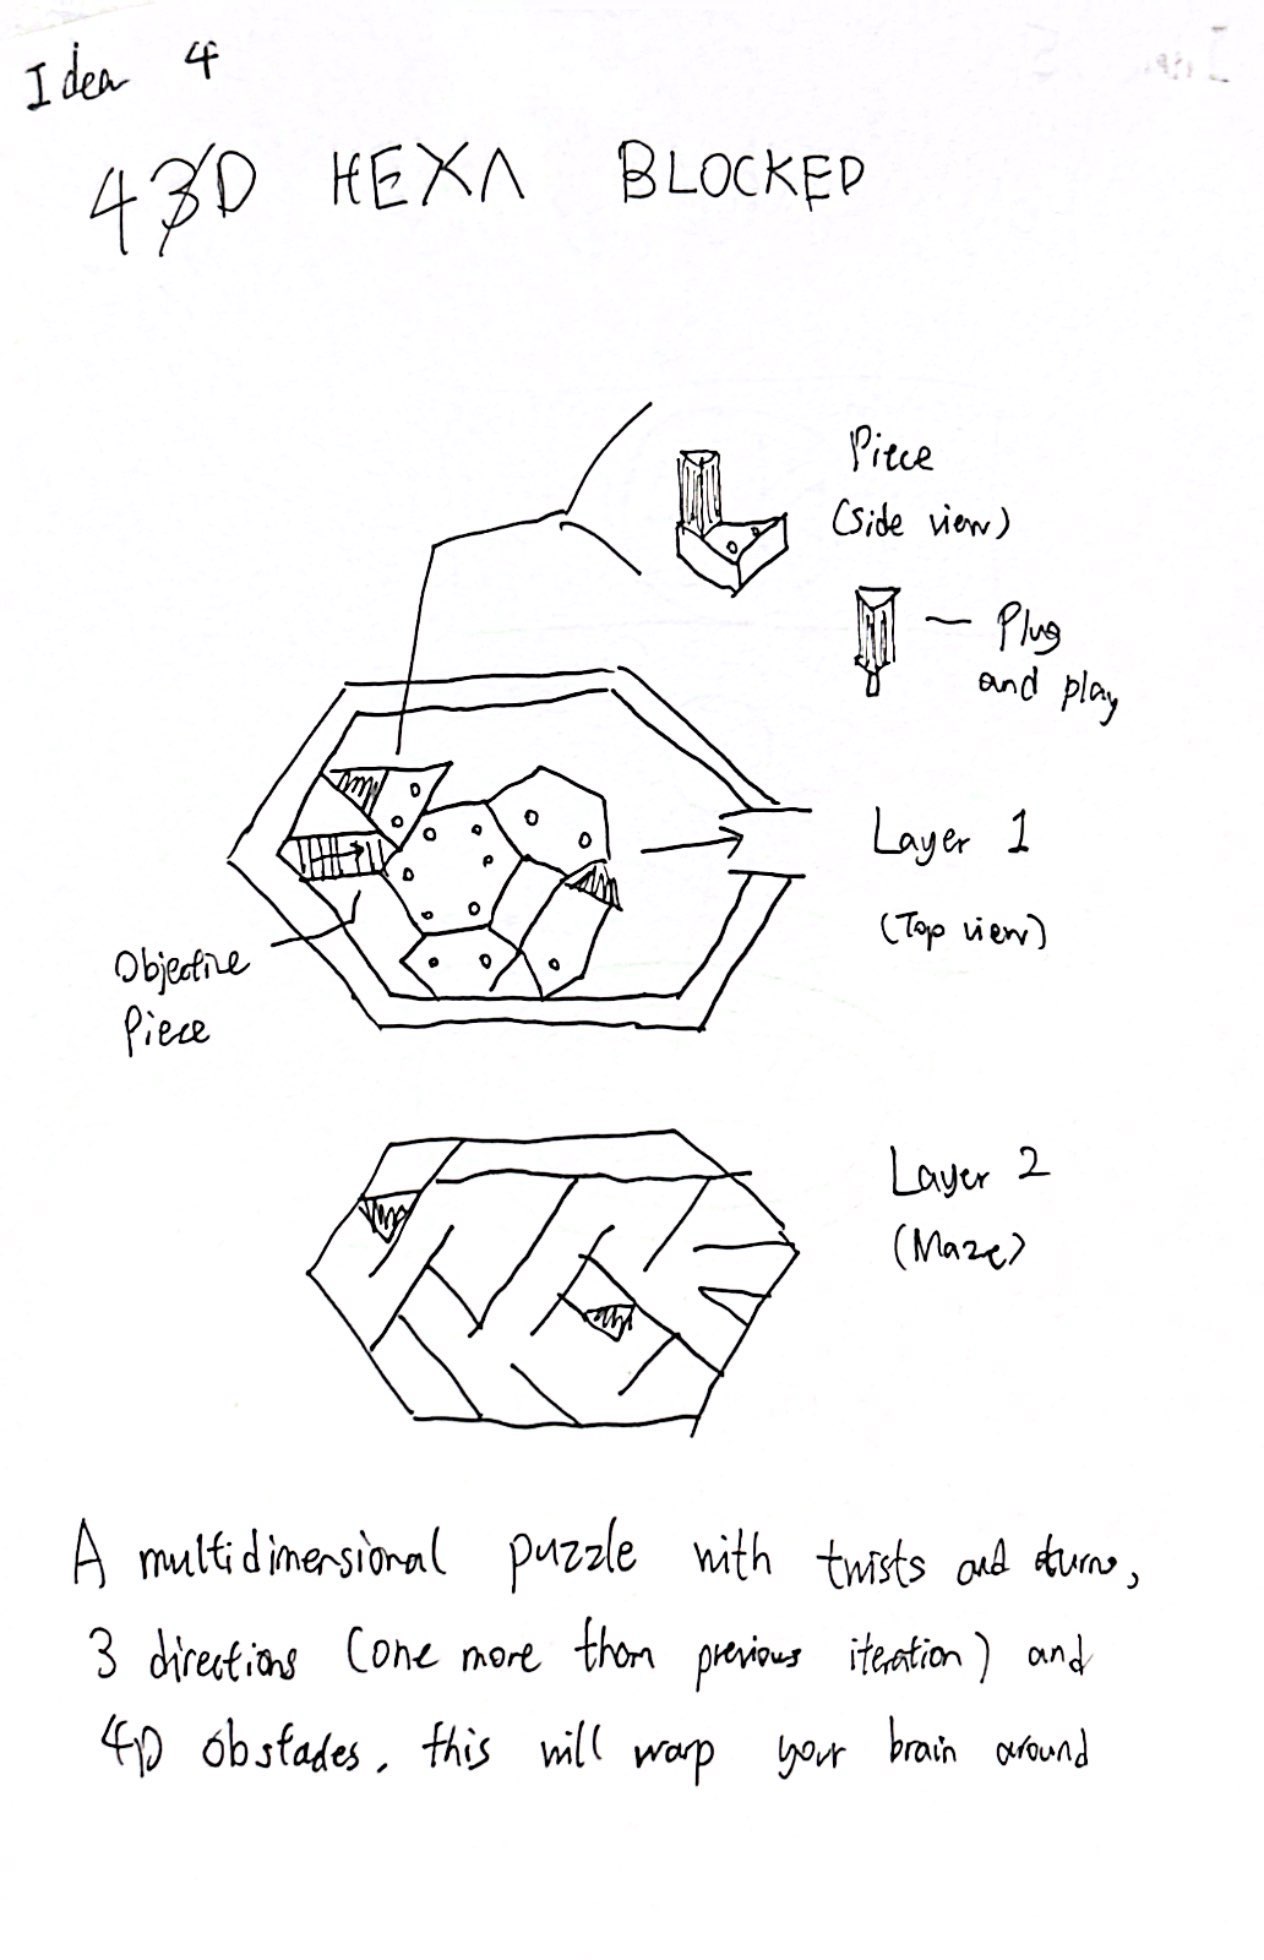 Idea 4
4 3D HEXA BLOCKED
Piece
(side view)
Plug
and play
Layer 1
(Top view)
Objective
Piece
Layer 2
(Maze)
A multidimensional puzzle with twists and turns,
3 directions (one more than previous iteration) and
4D obstacles. this will warp your brain around